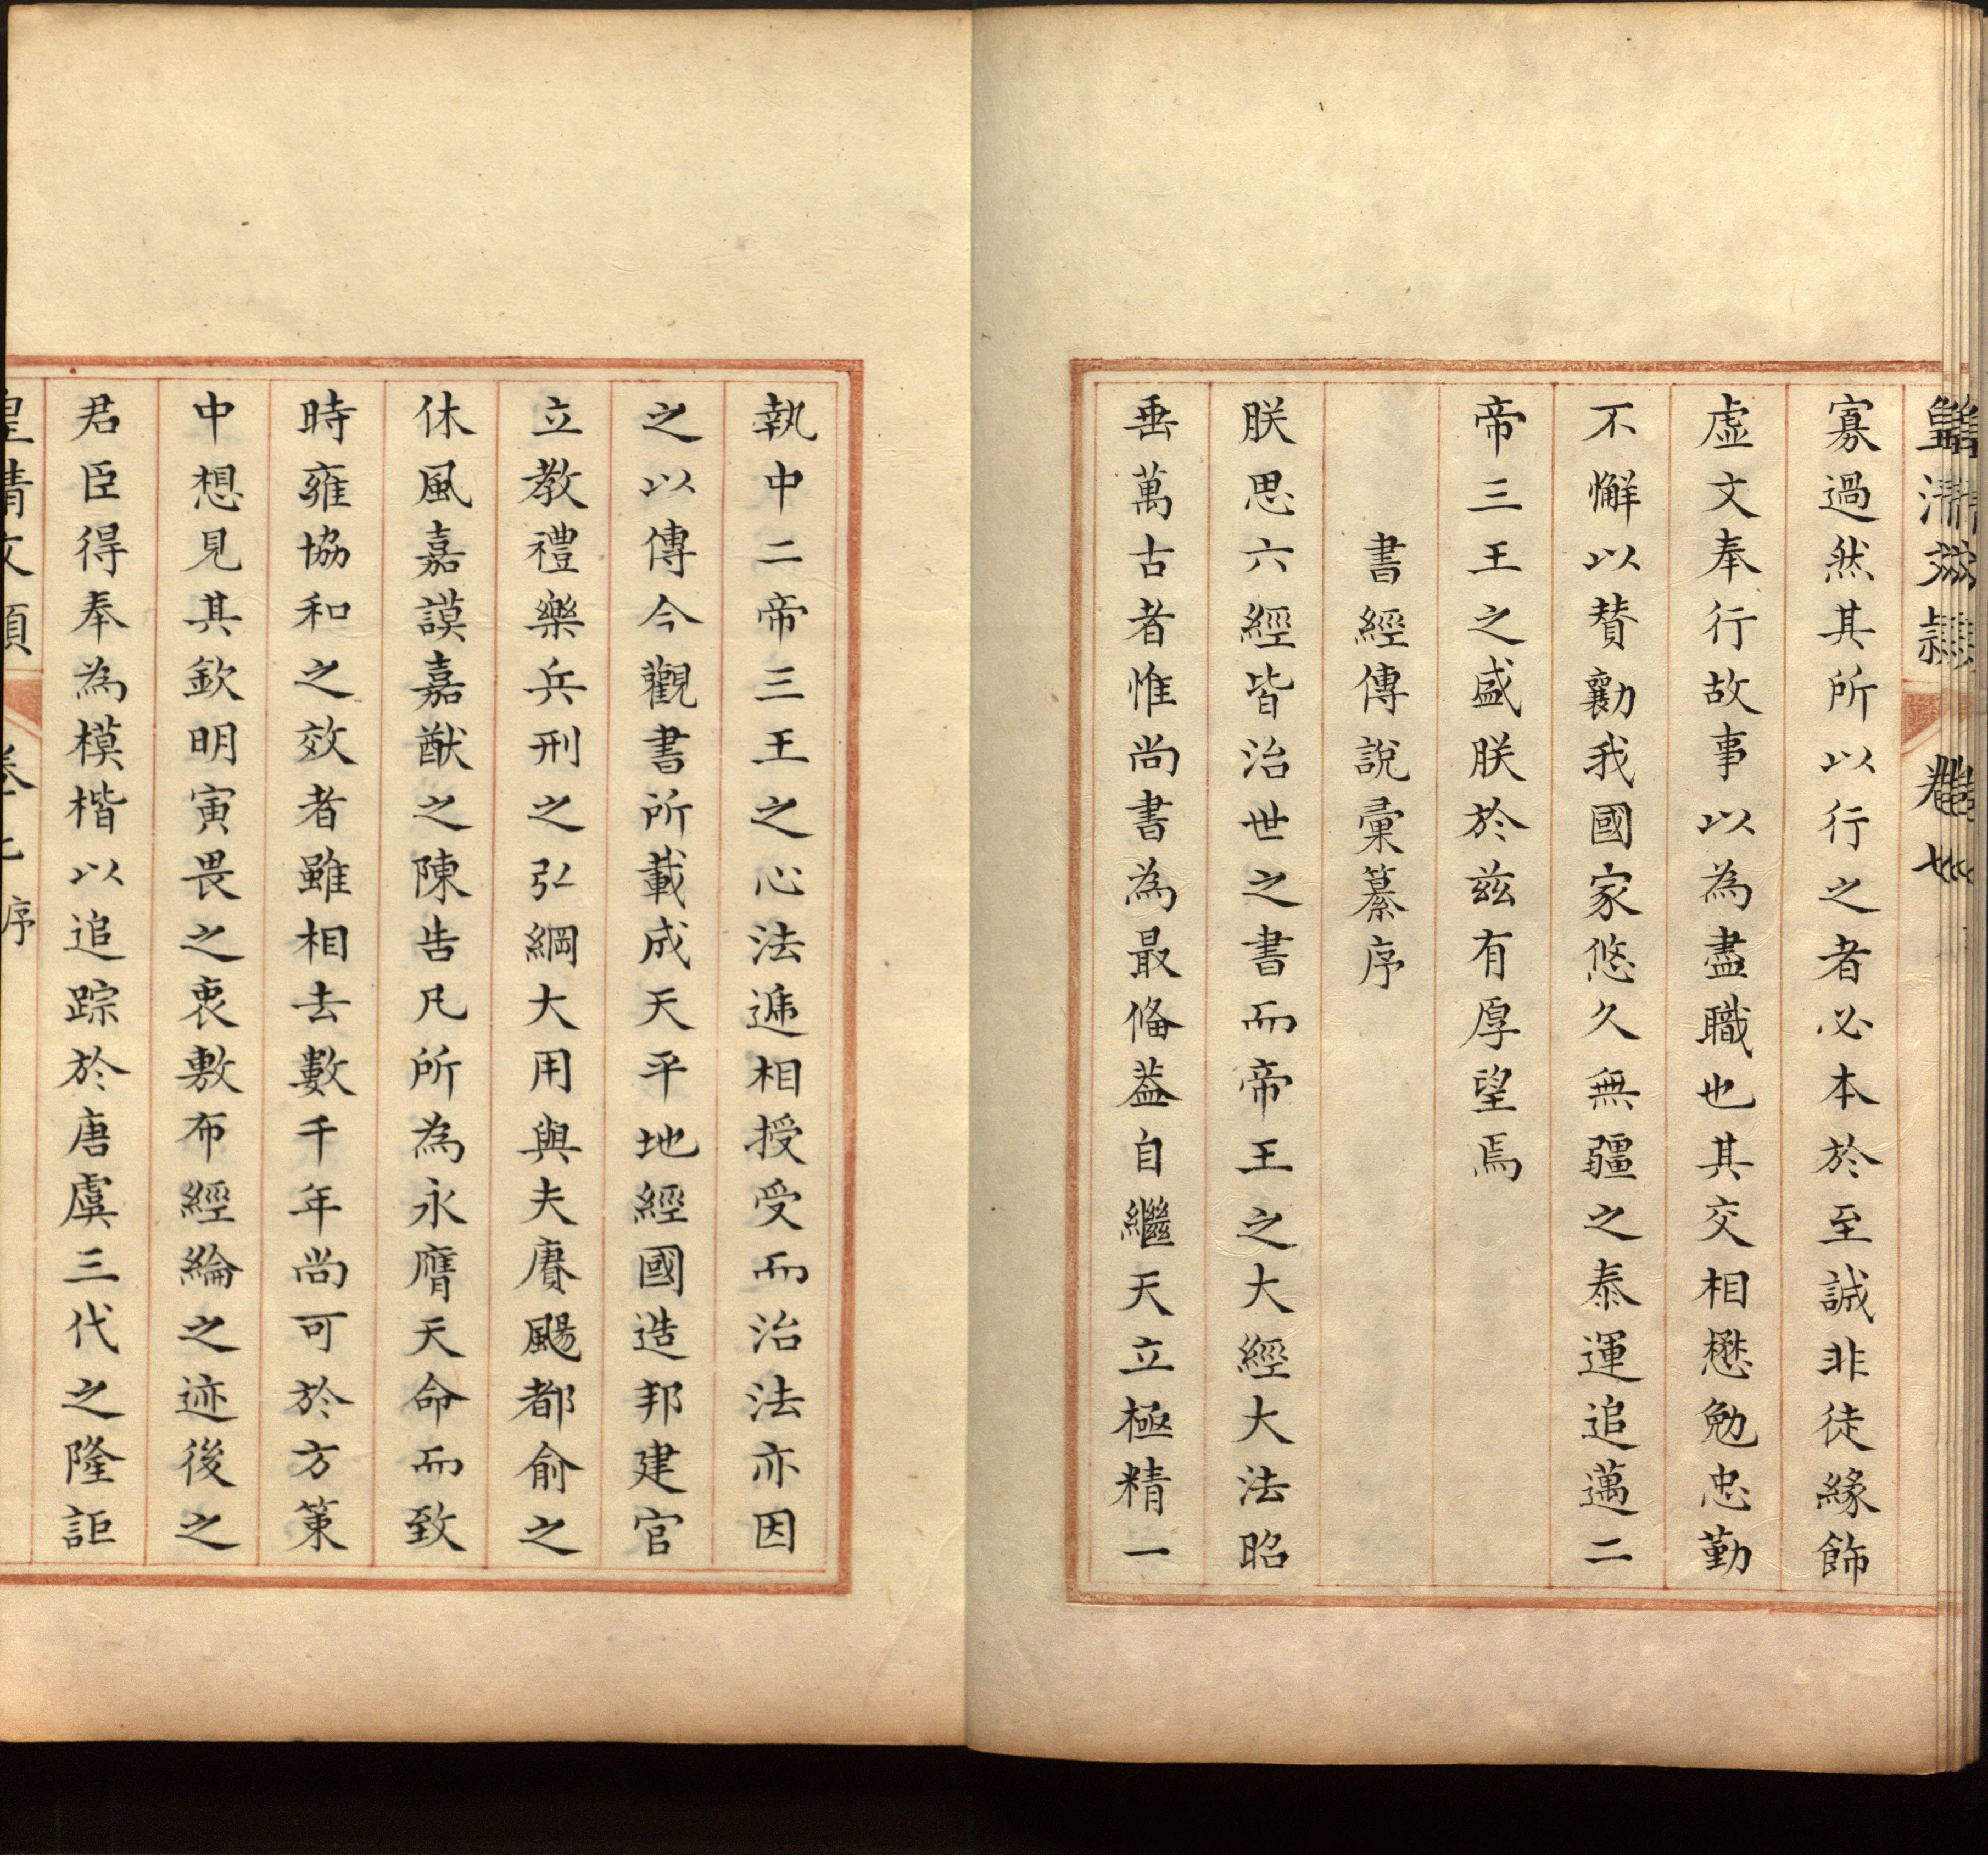 寡過然其所以行之者必本於至誠非徒緣飾
虛文奉行故事以為盡職也其交相懋勉忠勤
不懈以贊勷我國家悠久無疆之泰運追邁二
帝三王之盛朕於茲有厚望焉
書經傳說彙纂序
朕思六經皆治世之書而帝王之大經大法昭
垂萬古者惟尚書為最偹葢自繼天立極精一
執中二帝三王之心法遞相授受而治法亦因
之以傳今觀書所載成天平地經國造邦建官
立教禮樂兵刑之弘綱大用與夫賡颺都俞之
休風嘉謨嘉猷之陳告凡所為永膺天命而致
時雍協和之效者雖相去數千年尚可於方策
中想見其欽明寅畏之衷敷布經綸之迹後之
君臣得奉為模楷以追踪於唐虞三代之隆詎
皇清文穎 卷 序